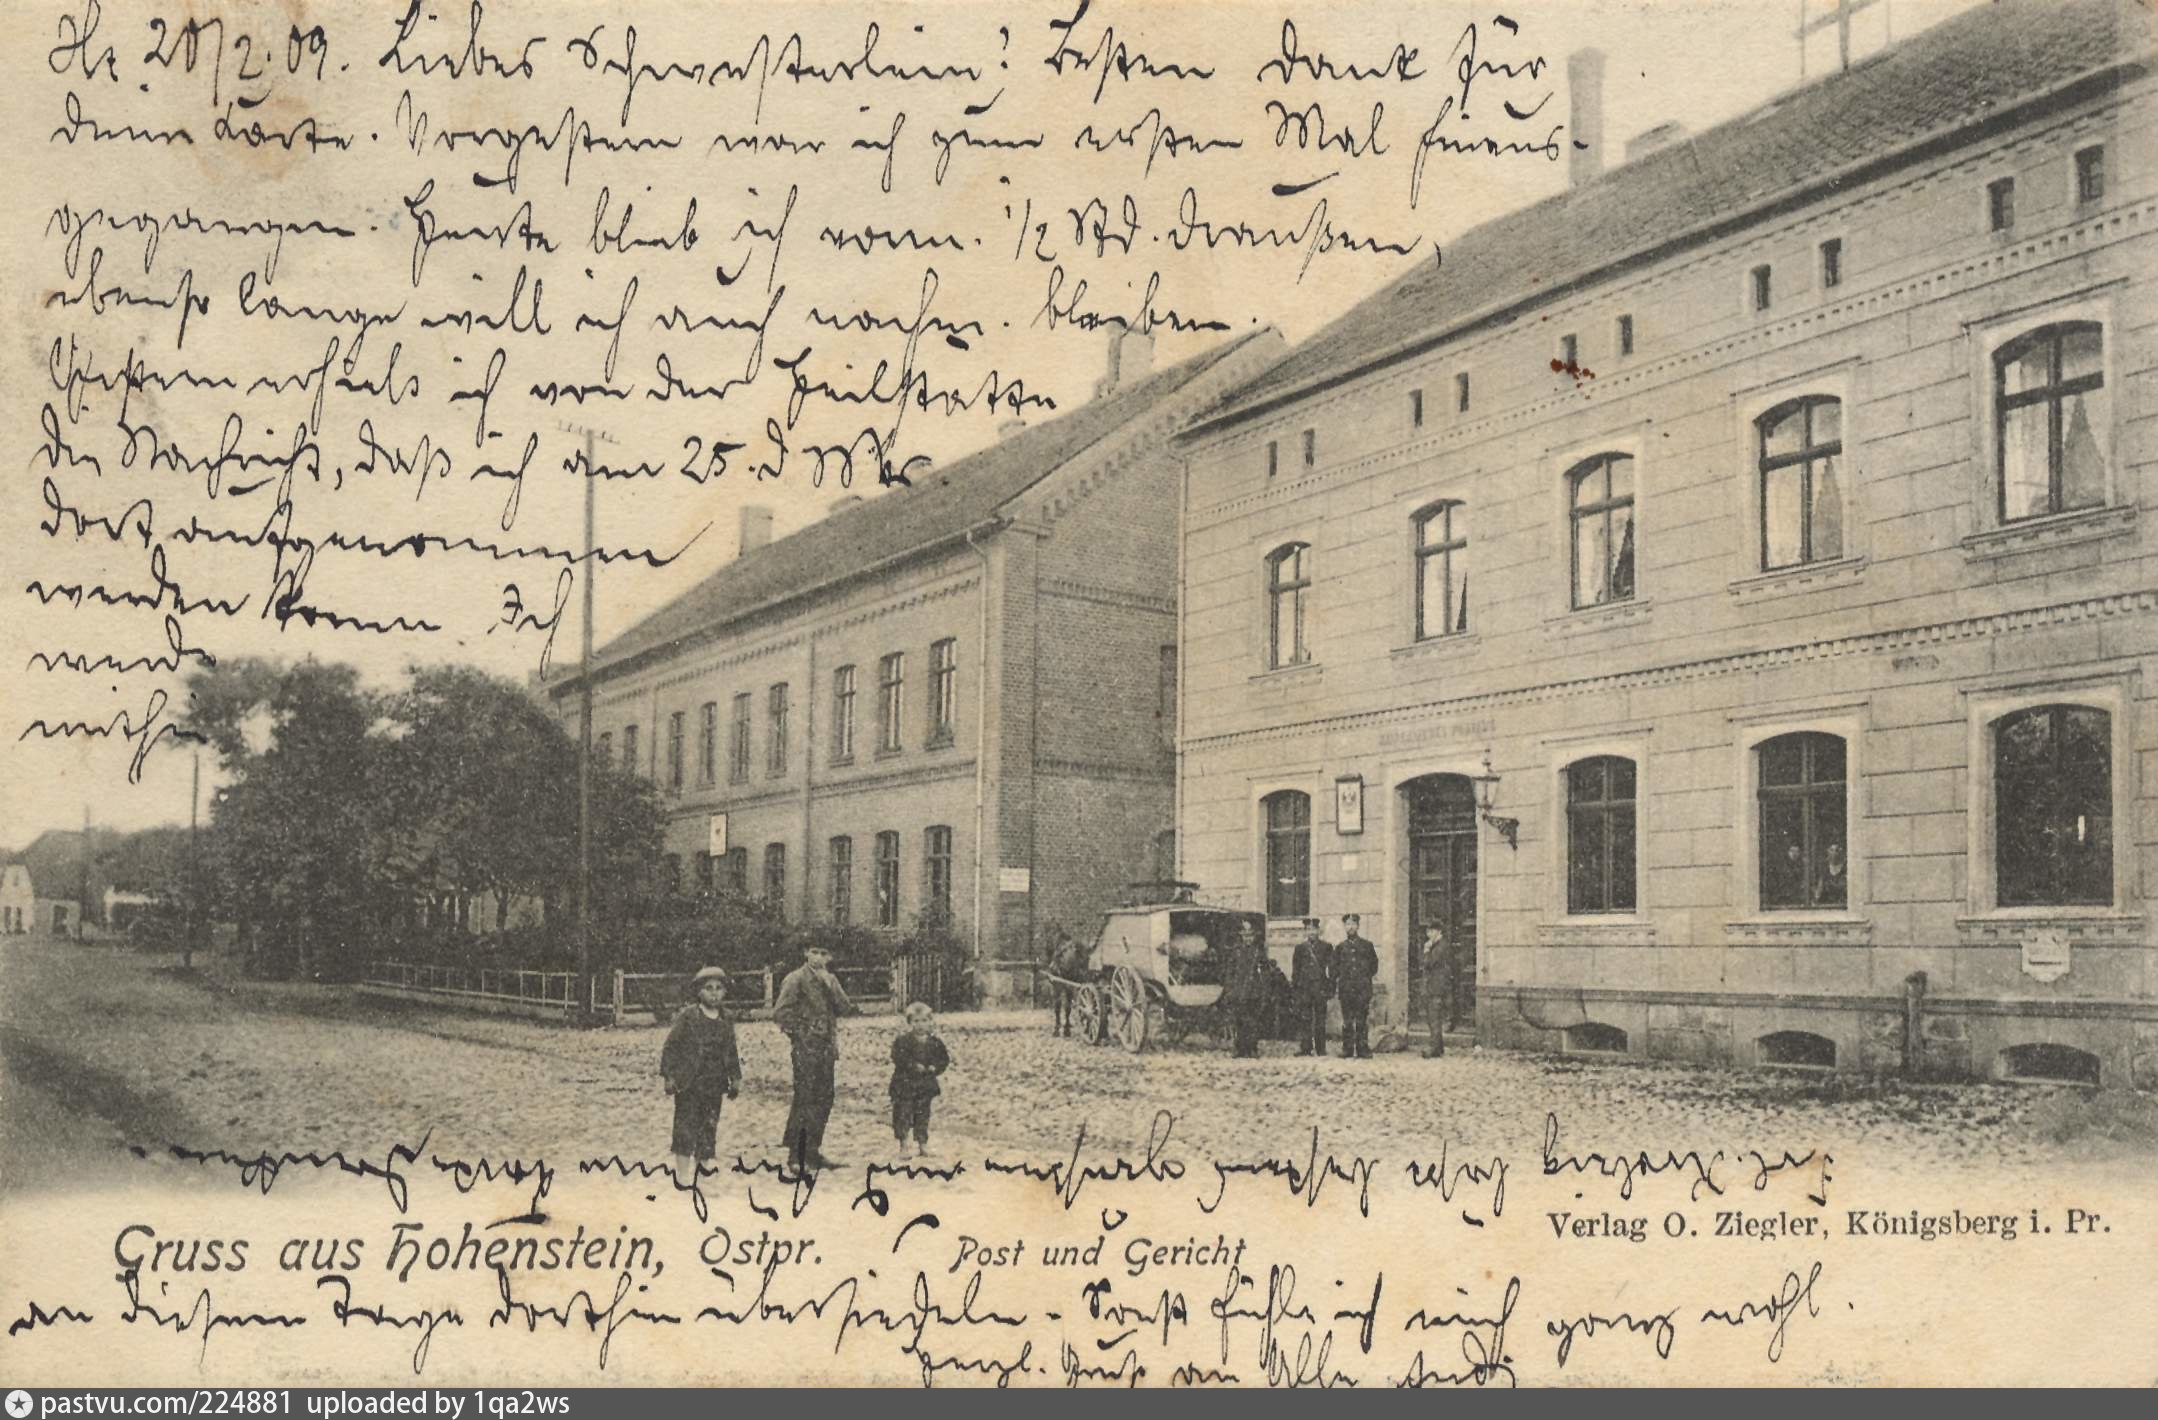 20/2.09. Liebes Schwesterlein! Besten Dank für
deine Karte. Vorgestern war ich zum ersten Mal hinaus-
gegangen. Heute blieb ich vorm. 1/2 Std. draußen,
ebenso lange will ich auch nachm. bleiben.
Gestern erhielt ich von der Heilstätte
die Nachricht, daß ich am 25. d Mts
dort aufgenommen
werden kann. Ich
werde
mithin
Gruss aus Hohenstein, Ostpr. Post und Gericht
Verlag O. Ziegler, Königsberg i. Pr.
an diesem Tage dorthin übersiedeln. Sonst fühle ich mich ganz wohl.
Herzl. Gruß an Alle
Frl. läßt bestens grüßen und für Deine Karte danken.
pastvu.com/224881 uploaded by 1qa2ws